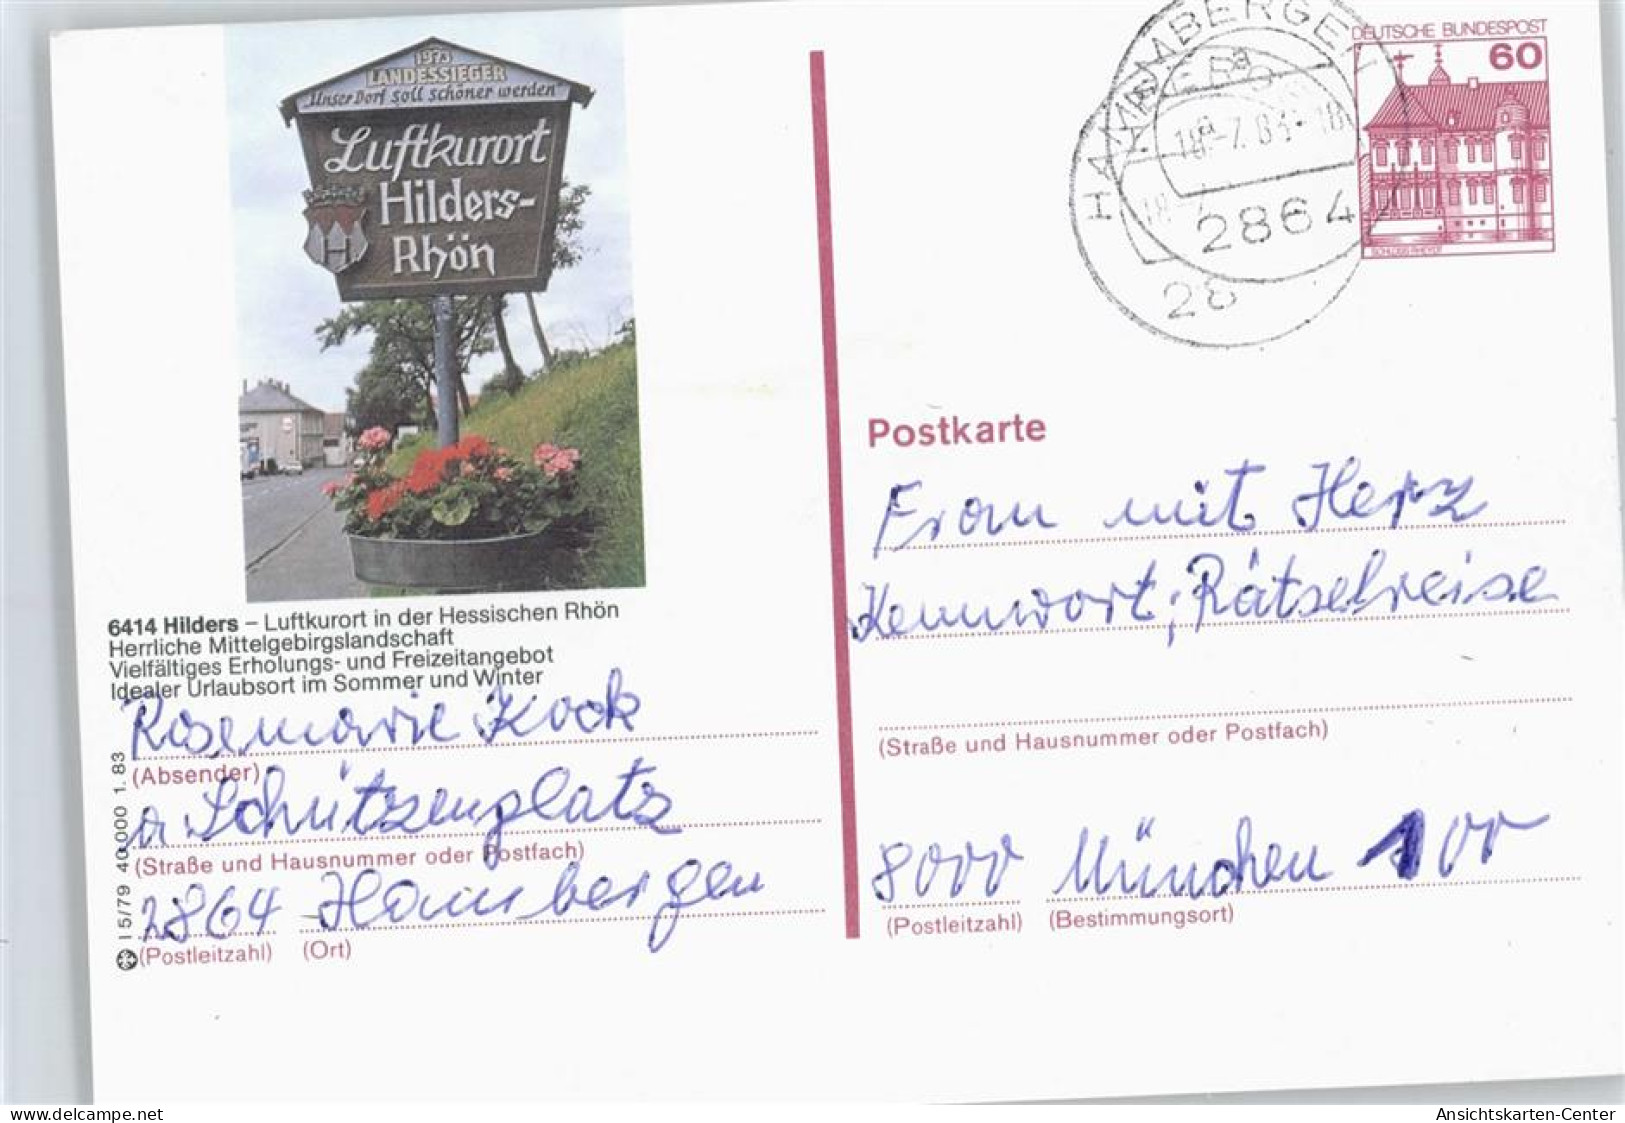 1973
LANDESSIEGER
"Unser Dorf soll schöner werden"
Luftkurort
Hilders-
Rhön
6414 Hilders – Luftkurort in der Hessischen Rhön
Herrliche Mittelgebirgslandschaft
Vielfältiges Erholungs- und Freizeitangebot
Idealer Urlaubsort im Sommer und Winter
Rosemarie Kock
(Absender)
Schützenplatz
(Straße und Hausnummer oder Postfach)
2864 Hambergen
(Postleitzahl) (Ort)
15/79 40 000 1.83
DEUTSCHE BUNDESPOST
60
SCHLOSS RHEYDT
HAMBERGEN
a
2864
28
Postkarte
Frau mit Herz
Kennwort; Rätselreise
(Straße und Hausnummer oder Postfach)
8000 München 100
(Postleitzahl) (Bestimmungsort)
www.oldthing.de
Ansichtskarten-Center